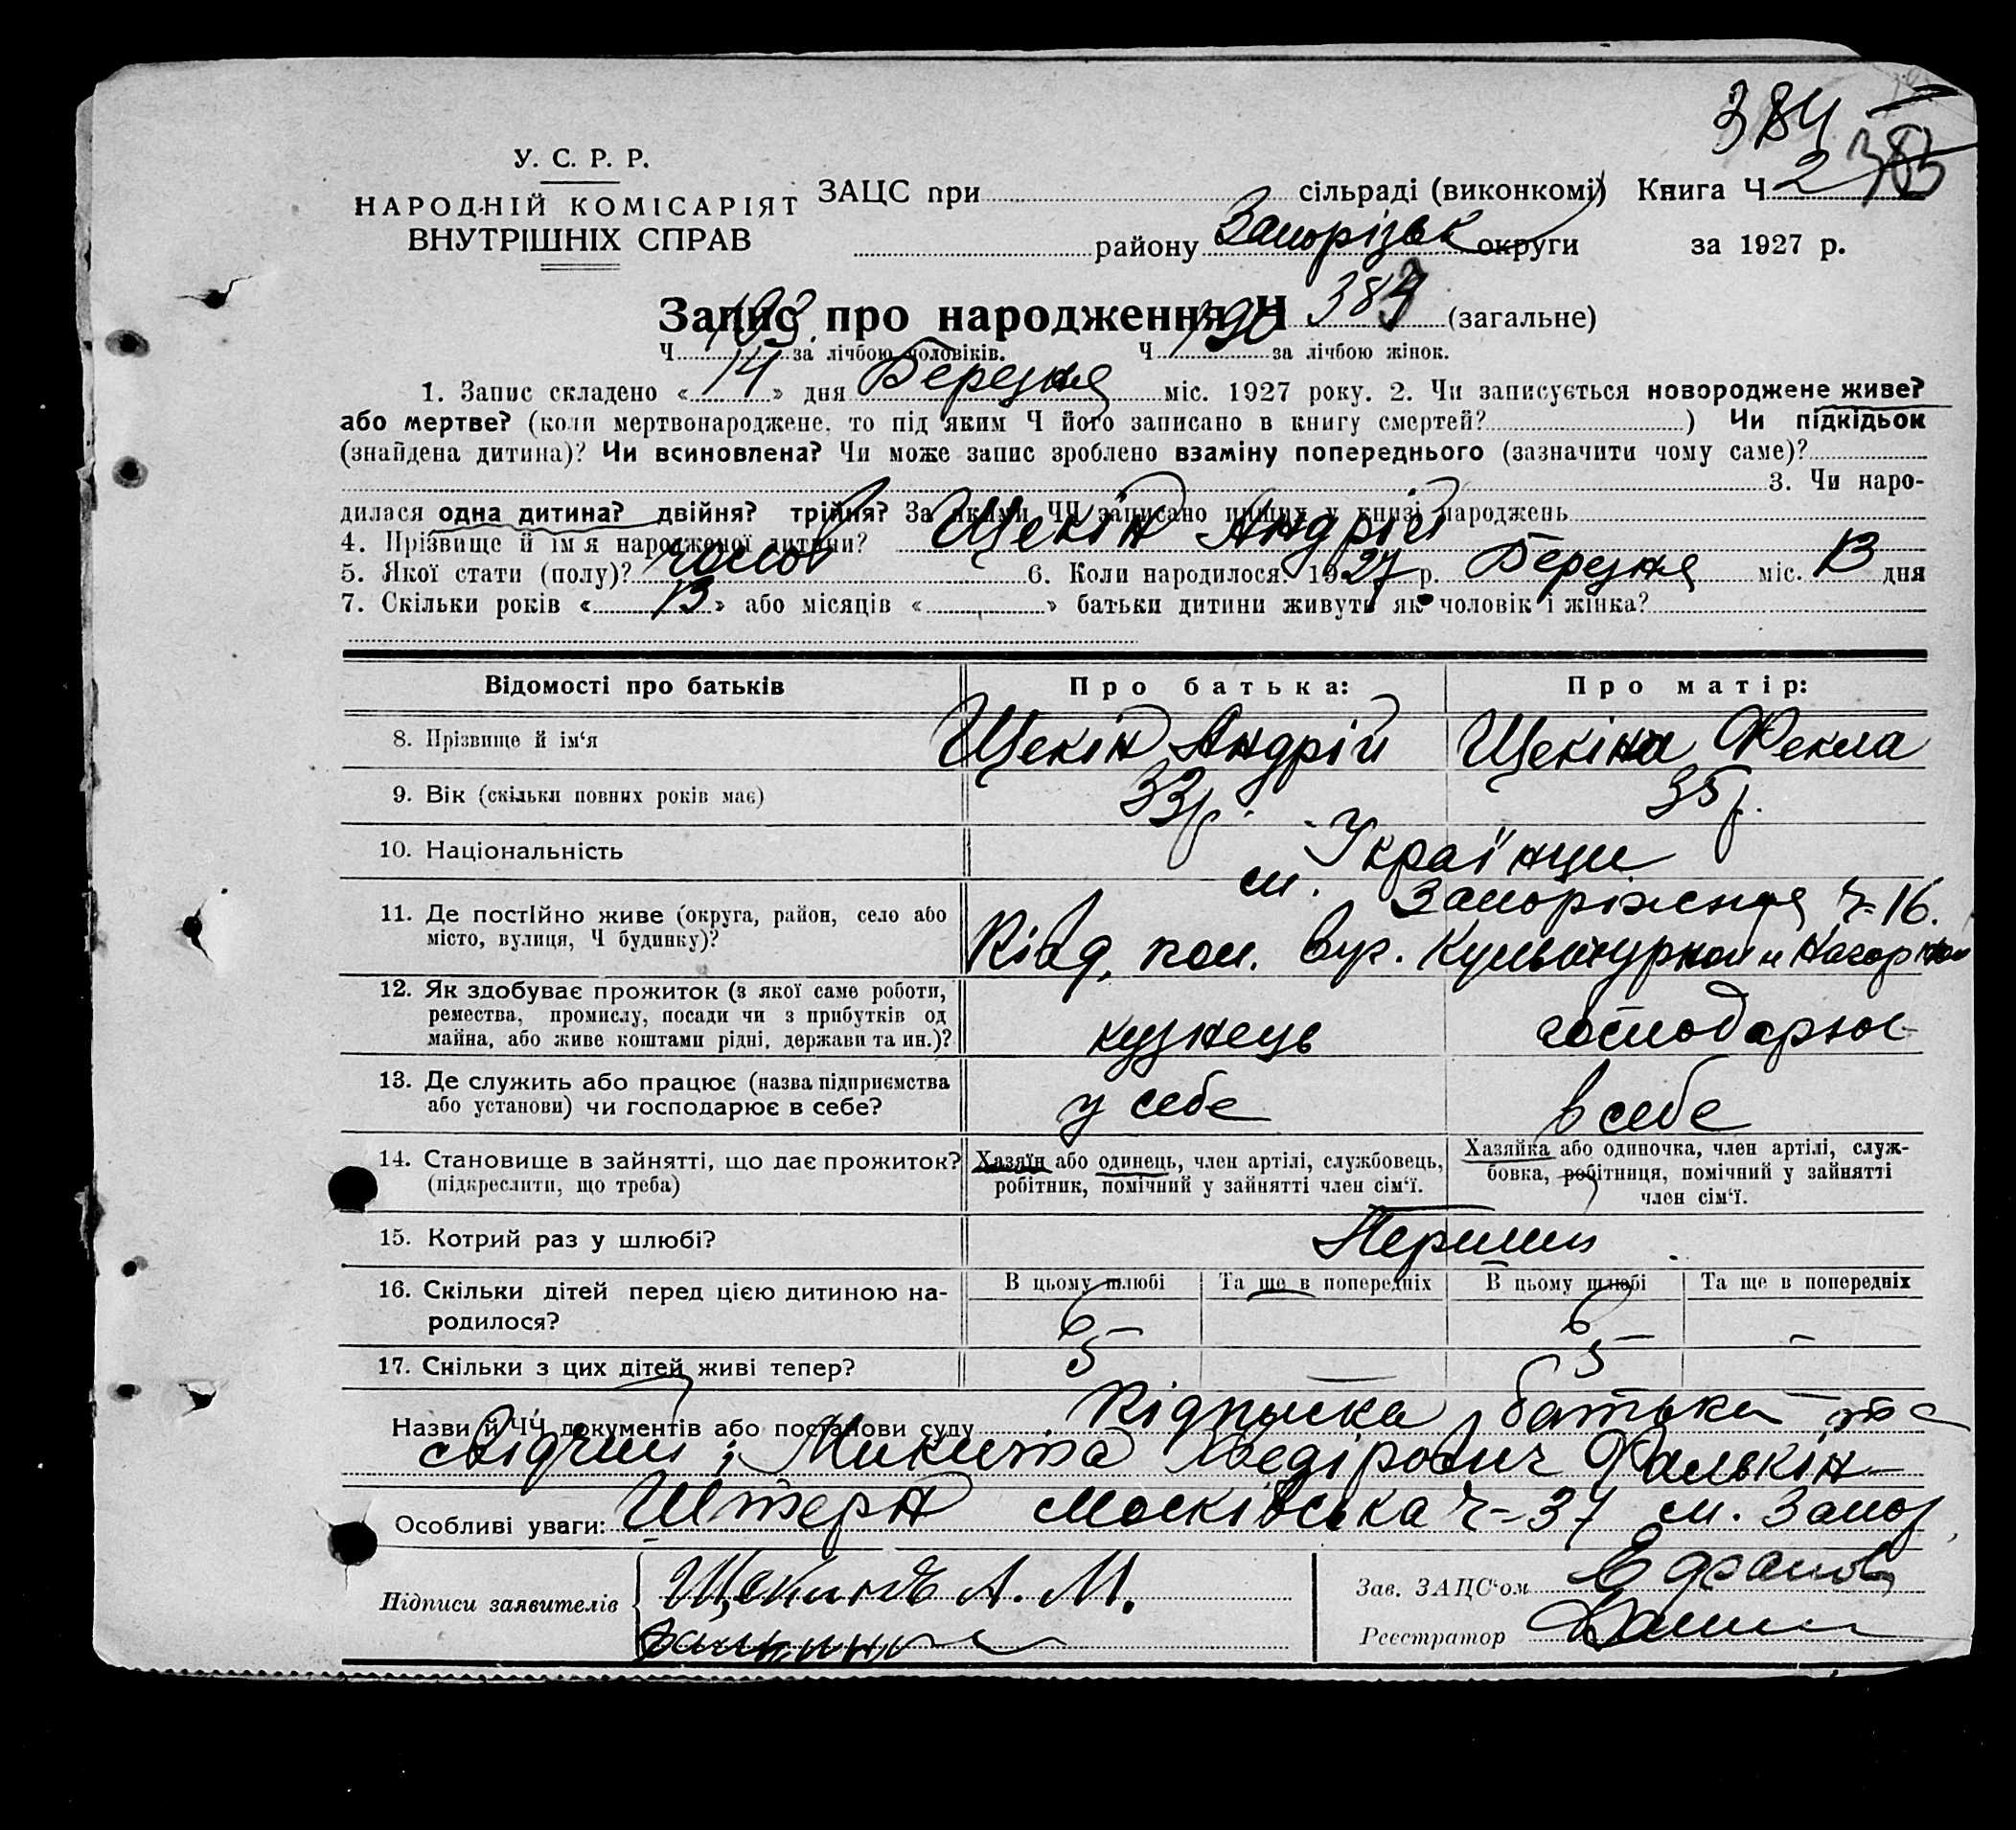 384
У. С. Р. Р.
НАРОДНІЙ КОМІСАРІЯТ
ВНУТРІШНІХ СПРАВ
ЗАЦС при сільраді (виконкомі) Книга Ч 2 383
району Запорізьк округи за 1927 р.
Запис про народження Ч 384 (загальне)
Ч 193 за лічбою чоловіків. Ч 190 за лічбою жінок.
1. Запис складено « 14 » дня Березня міс. 1927 року. 2. Чи записується новороджене живе?
або мертве? (коли мертвонароджене, то під яким Ч його записано в книгу смертей? ) Чи підкідьок
(знайдена дитина)? Чи всиновлена? Чи може запис зроблено взаміну попереднього (зазначити чому саме)?
3. Чи наро-
дилася одна дитина? двійня? трійня? За якими ЧЧ записано инших у книзі народжень
4. Прізвище й ім'я народженої дитини? Щекін Андрій
5. Якої стати (полу)? чолов 6. Коли народилося? 1927 р. Березня міс. 13 дня
7. Скільки років « 13 » або місяців « » батьки дитини живуть як чоловік і жінка?
Відомості про батьків Про батька: Про матір:
8. Прізвище й ім'я Щекін Андрій Щекіна Фекла
9. Вік (скільки повних років має) 33 р. 35 р.
10. Національність Українци
11. Де постійно живе (округа, район, село або місто, вулиця, Ч будинку)? м. Запоріжжя Ч-16.
Вуг. Культурной и Нагорной
12. Як здобуває прожиток (з якої саме роботи, ремества, промислу, посади чи з прибутків од майна, або живе коштами рідні, держави та ин.)? кузнець господарює
13. Де служить або працює (назва підприємства або установи) чи господарює в себе? у себе в себе
14. Становище в зайнятті, що дає прожиток? (підкреслити, що треба) Хазяїн або одинець, член артілі, службовець, робітник, помічний у зайнятті член сім'ї. Хазяйка або одиночка, член артілі, служ-бовка, робітниця, помічний у зайнятті член сім'ї.
15. Котрий раз у шлюбі? Перший
В цьому шлюбі Та ще в попередніх В цьому шлюбі Та ще в попередніх
16. Скільки дітей перед цією дитиною на-родилося? 6 — 6 — —
17. Скільки з цих дітей живі тепер? 5 — 5
Назви й ЧЧ документів або постанови суду Підпыска батька та
свідчий: Микита Федірович Фалькін-
Особливі уваги: Штерн Московська Ч-37 м. Запор
Підписи заявителів Щекинъ А. М.
Зав. ЗАЦС'ом
Реєстратор